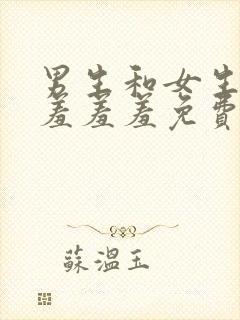 男生和女生
羞羞羞免費
蘇溫玉